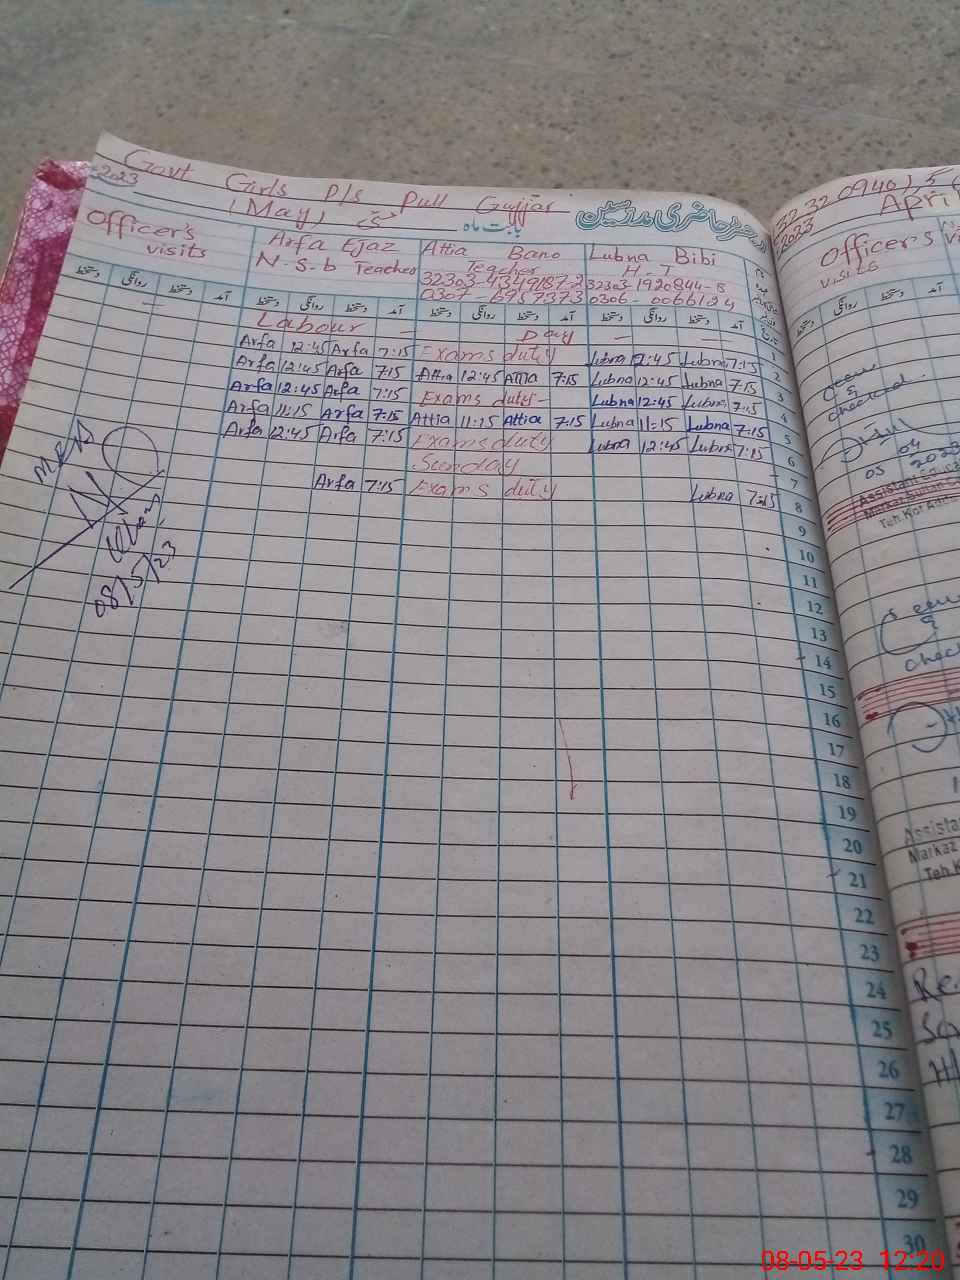 Govt Girls P/S Pull Gujjar
2023
(May) مئی بابت ماہ رجسٹر حاضری مدارسین
Officer's visits
Arfa Ejaz
N-S-b Teacher
Attia Bano
Teacher
0307-6957373
Lubna Bibi
H-T
32303-1920844-8
دستخط روانگی دستخط آمد دستخط روانگی دستخط آمد دستخط روانگی دستخط آمد دستخط روانگی دستخط آمد
Labour — Day — — 1
Arfa 12:45 Arfa 7:15 Exams duty Lubna 12:45 Lubna 7:15 2
Arfa 12:45 Arfa 7:15 Attia 12:45 Attia 7:15 Lubna 12:45 Lubna 7:15 3
Arfa 12:45 Arfa 7:15 Exams duty - Lubna 12:45 Lubna 7:15 4
Arfa 11:15 Arfa 7:15 Attia 11:15 Attia 7:15 Lubna 11:15 Lubna 7:15 5
Arfa 12:45 Arfa 7:15 Exams duty Lubna 12:45 Lubna 7:15 6
Sunday 7
Arfa 7:15 Exams duty Lubna 7:15 8
9
10
11
12
13
14
15
16
17
18
19
20
21
22
23
24
25
26
27
28
29
30
08/5/23
2023
Apri
Officer's
visits
&
checked
05 04 2023
Assistant Educa
Teh. Kot Ad
&
chec
Assista
Markaz
Teh.K
08-05-23 12:20